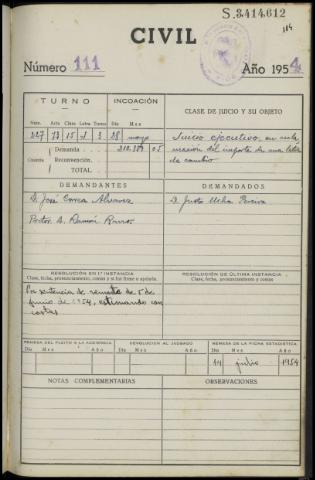 S.3414.612
114
CIVIL
Número 111 Año 1954
TURNO INCOACIÓN CLASE DE JUICIO Y SU OBJETO
Núm. Acta Clase Letra Turno Día Mes
227 13 15 1 3 28 mayo Juicio ejecutivo, en recla
Cuantía Demanda 05
Reconvención mación del importe de una letra
TOTAL de cambio
DEMANDANTES DEMANDADOS
D. José Correa Alvarez D. Justo
D. Ramón
RESOLUCIÓN EN 1.ª INSTANCIA RESOLUCIÓN DE ÚLTIMA INSTANCIA
Clase, fecha, pronunciamiento, costas y si fue firme o apelada. Clase, fecha, pronunciamiento, costas
Por sentencia de remate de 5 de
junio de 1954, estimando con
costas
REMESA DEL PLEITO A LA AUDIENCIA DEVOLUCIÓN AL JUZGADO REMESA DE LA FICHA ESTADÍSTICA
Día Mes Año Día Mes Año Día Mes Año
14 julio 1954
NOTAS COMPLEMENTARIAS OBSERVACIONES